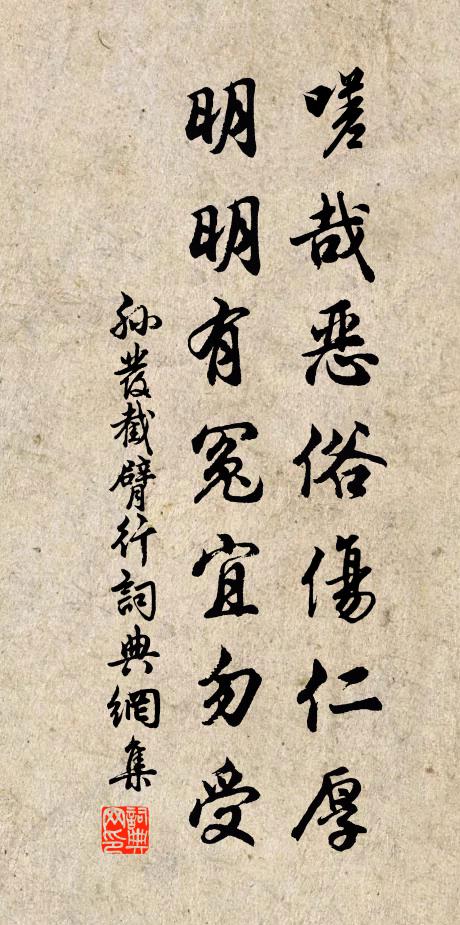 嗟哉恶俗傷仁厚
明明有冤宜勿受
孙發截臂行詞典網集
詞典
网印